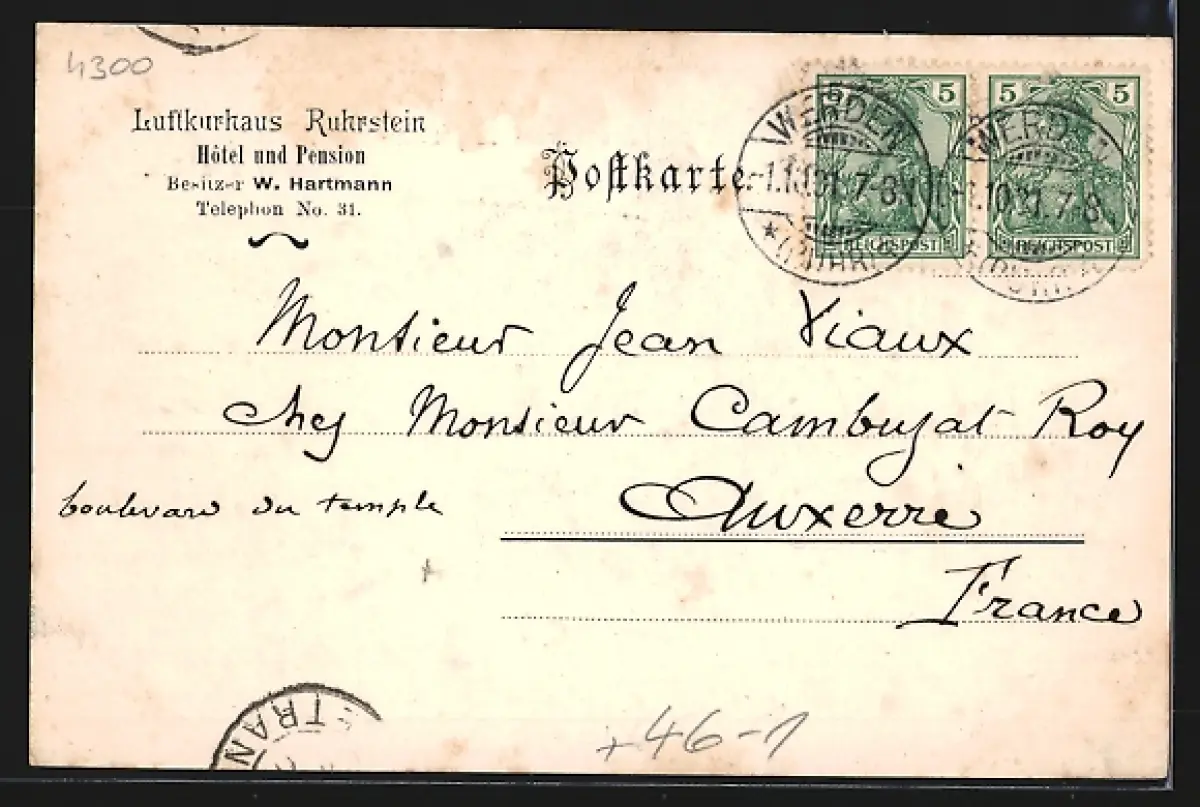 4300
Luftkurhaus Ruhrstein
Hôtel und Pension
Besitzer W. Hartmann
Telephon No. 31.
Postkarte
5 5 5
REICHSPOST REICHSPOST
WERDEN
1.10.01. 7-8
(RUHR)
Monsieur Jean Viaux
chez Monsieur Cambuzat Roy
boulevard du temple
Auxerre
France
ETRAN
+46-1